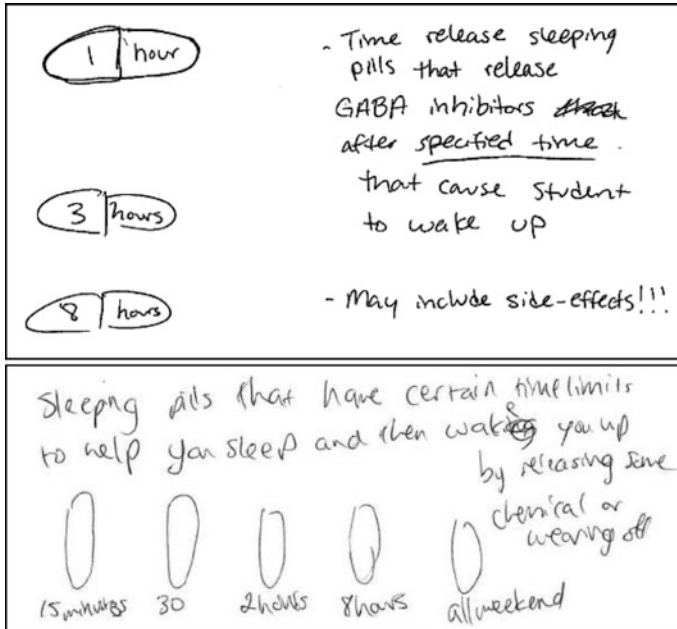 1 hour
- Time release sleeping
pills that release
GABA inhibitors
after specified time.
that cause student
to wake up
3 hours
8 hours
- May include side-effects!!!
Sleeping pills that have certain time limits
to help you sleep and then wake you up
by releasing some
chemical or
wearing off
15 minutes 30 2 hours 8 hours all weekend